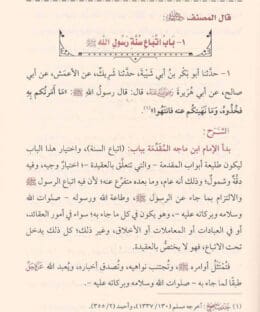 قال المصنف ﷺ:
١- بَابُ اتِّبَاعِ سُنَّةِ رَسُولِ اللهِ ﷺ
١ - حدَّثنا أبو بكر بنُ أبي شَيْبَةَ، حدَّثنا شَرِيكٌ، عن الأعمَش، عن أبي
صالح، عن أبي هُرَيرةَ، قال: قال رسولُ الله ﷺ: «مَا أَمَرْتُكُم بِهِ
فَخُذُوهُ، وَمَا نَهَيْتُكُم عَنه فَانتَهُوا»(١)
الشَّرْح:
بدأ الإمام ابن ماجه المُقدِّمة بباب: (اتباع السنة)، واختيار هذا الباب
ليكون طليعة أبواب المقدمة - والتي تتعلَّق بالعقيدة -؛ اختيارٌ وجيه، وفيه
دقَّةٌ وشمولٌ؛ وذلك أنه عام، وما بعده متفرِّع عنه؛ لأن فيه اتباعَ الرسول ﷺ
والالتزام بما جاء عن الرسول، وطاعة الله ورسوله - صلوات الله
وسلامه وبركاته عليه -، وهو يكون في كل ما جاء به؛ سواء في أمور العقائد،
أو في العبادات أو المعاملات أو الأخلاق، وغير ذلك؛ كل ذلك يدخل
تحت الاتباع، فهو لا يختصُّ بالعقيدة.
فتُمتَثَلُ أوامره ﷺ، وتُجتنب نواهيه، وتُصدق أخباره، ويُعبد الله
طبقًا لما جاء به - صلوات الله وسلامه وبركاته عليه -.
(١) أخرجه مسلم (١٣٣٧/١٣٠)، وأحمد (٣٥٥/٢)